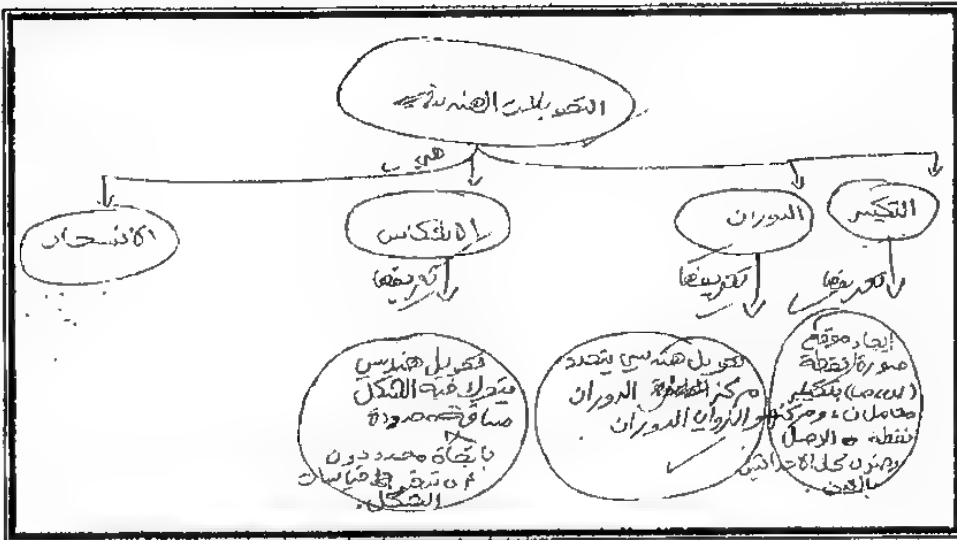 التحويلات الهندسية
هي
التكبير
الدوران
الانعكاس
الانسحاب
تعريفها
تعريفها
تعريفها
إيجاد موقع
صورة نقطة
(س،ص) بتكبير
معامله ن، ومركزه
نقطة الاصل
بالعدد
تحويل هندسي يتحدد
مركز الدوران
والزوايا الدوران
تحويل هندسي
يتحرك فيه الشكل
مسافة محدودة
باتجاه محدد دون
قياسات
الشكل.